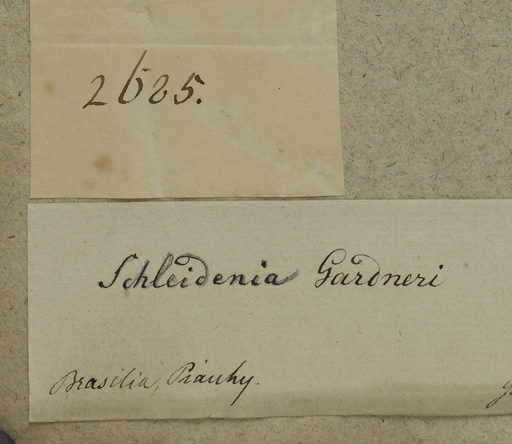 2685.
Schleidenia Gardneri
Brasilia, Piauhy.